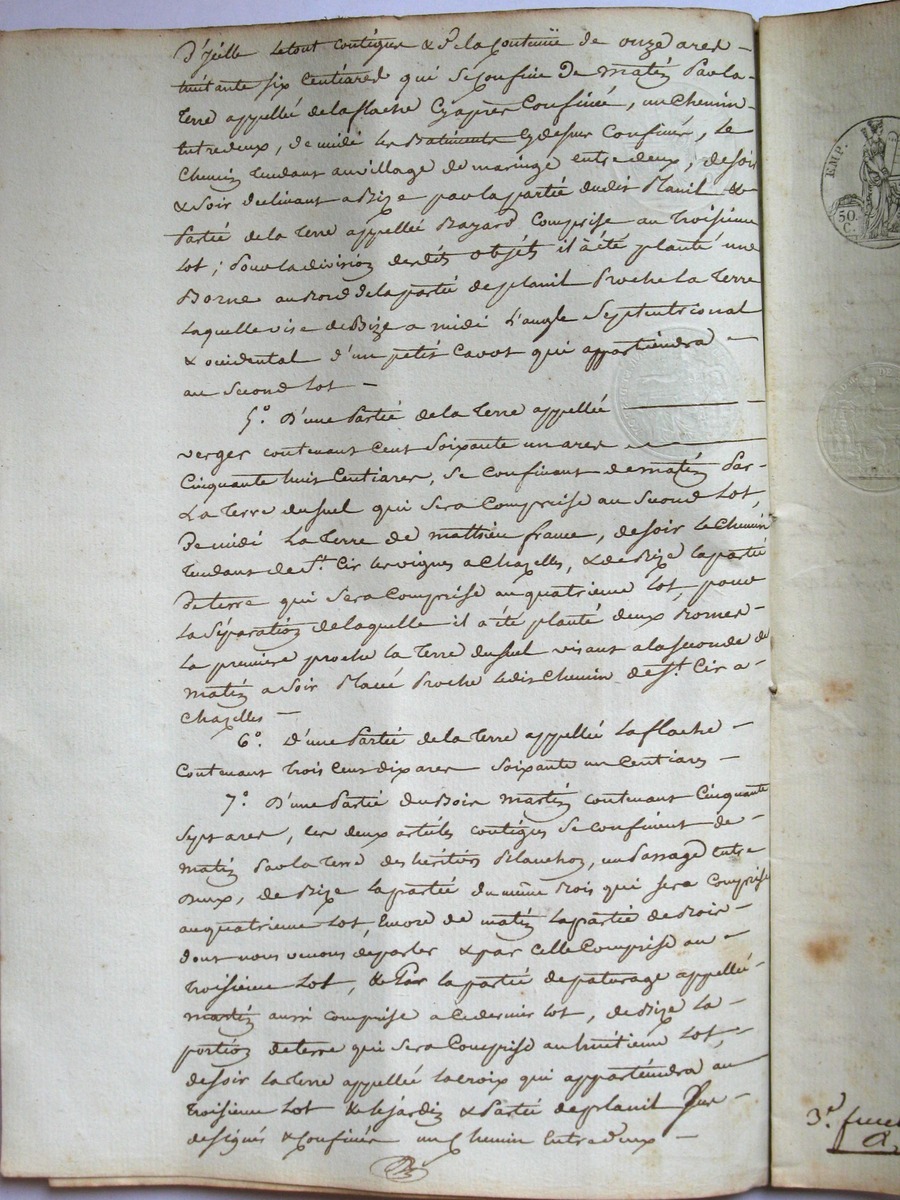 D'jeille le tout contigue & de la contenüe de onze ares
huitante six centiares qui se confine De matin Par la
terre appellé de la flache Cy apres Confinée, un chemin
entre deux, de midi les Batiments Cy dessus Confinés, Le
chemin tendant au village de maringe entre deux, de soir
& soir declinant a Bize par la partie dudit Planil &
Partie de la terre appellée Bayard Comprise au troisieme
lot; Pour la division desdits objets il a été planté une
Borne au Bord de la partie de planil Proche la terre
laquelle vise de Bize a midi l'angle Septentrional
& occidental d'un petit Cavot qui appartiendra
au second lot
5°. D'une Partie de la terre appellée
verger contenant Cent Soixante un ares
Cinquante huit Centiares, se confinant de matin Par
La terre du suel qui sera Comprise au second Lot,
De midi La terre de mathieu france, de soir le chemin
tendant de St. Cir les vignes a Chazelles, & de Bize la partie
De terre qui sera Comprise au quatrieme lot, pour
la séparation de laquelle il a été planté deux Bornes
la premiere proche la terre du suel visant a la seconde de
matin a soir Placé Proche ledit chemin de St. Cir a
Chazelles
6°. D'une Partie de la terre appellée la flache
Contenant trois Cent dix ares soixante un Centiares
7°. D'une Partie du Bois martin contenant Cinquante
Sept ares, les deux articles contigus se confinent de
matin Par la terre des héritiers Blanchon, un Passage entre
Deux, de Bize la partie du même Bois qui sera Comprise
au quatrieme lot, Encore de matin la partie de Bois
dont nous venons de parler & par Celle Comprise au
troisieme lot, & Par la partie de paturage appellé
martin aussi comprise a Ce dernier lot, de Bize La
portion de terre qui sera Comprise au huitieme lot,
de soir la terre appellée lacroix qui appartiendra au
troisieme lot & le jardin & Partie de planil Sus
designés & Confinés un Chemin Entre deux
EMP.
50
C.
3e.